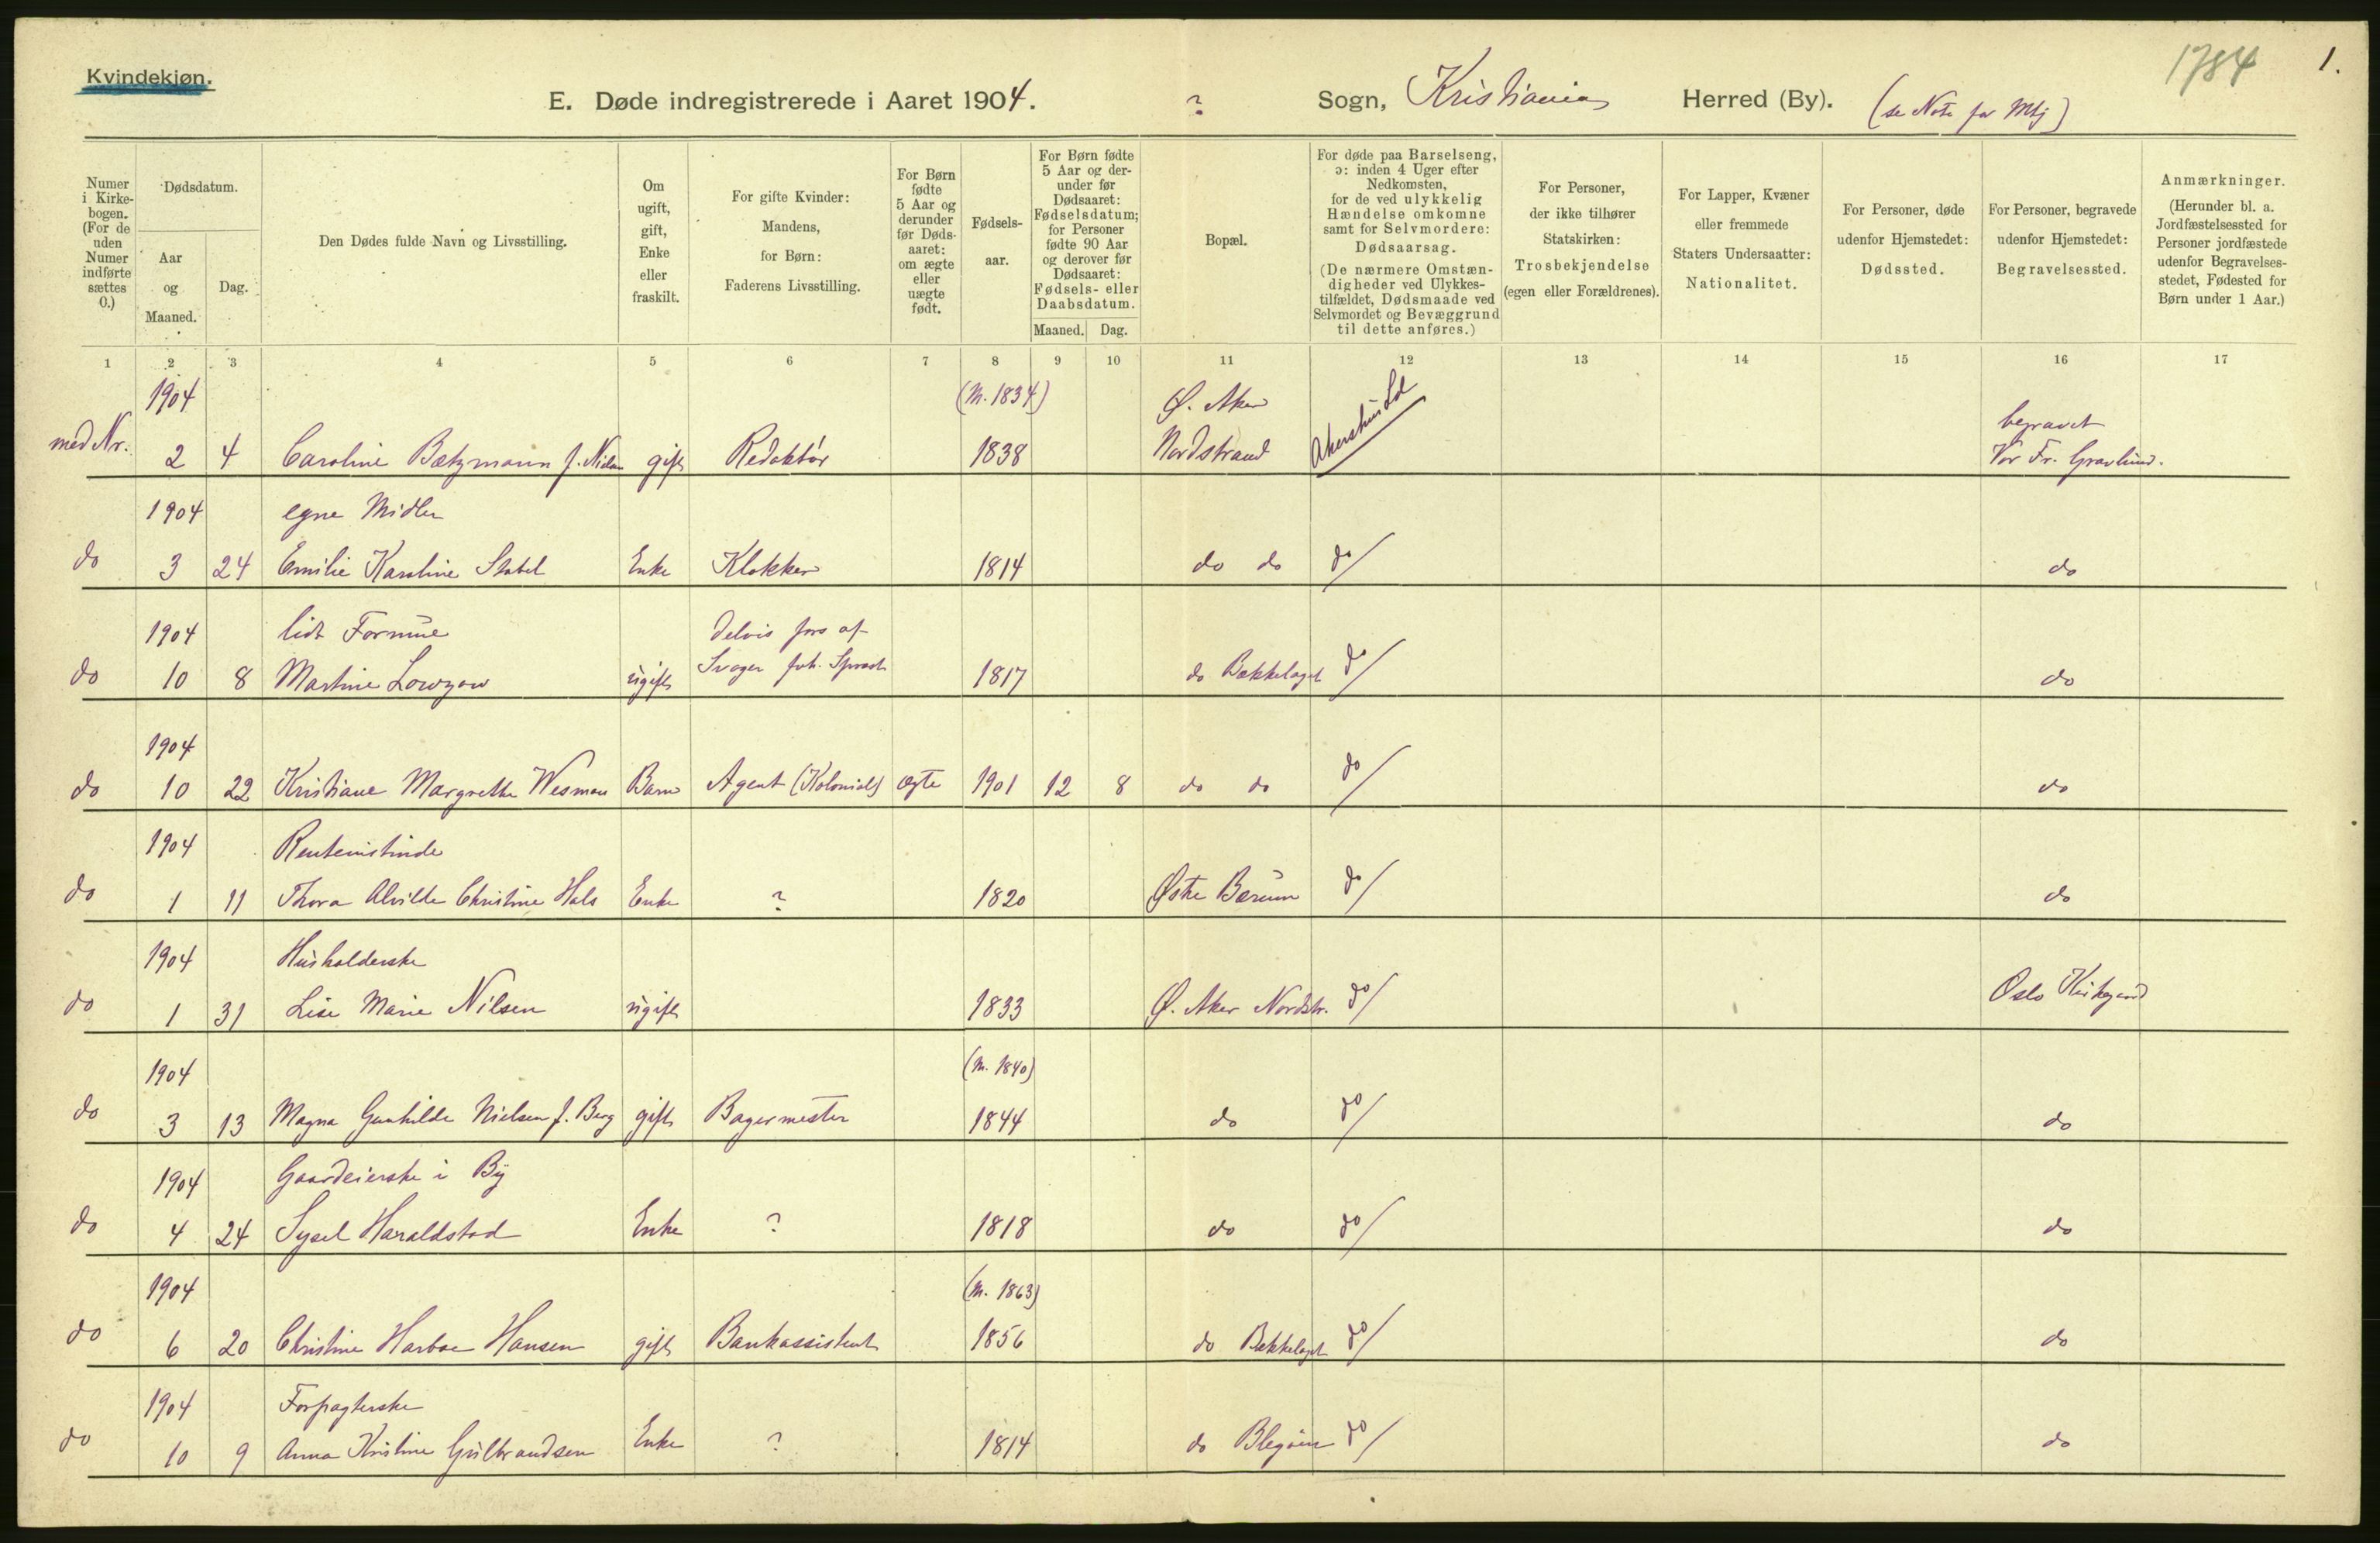 Kvindekjøn.
1784
1.
E. Døde indregistrerede i Aaret 1904. ? Sogn, Kristiania Herred (By). (se Note for Mkj)
Numer i Kirkebogen. (For de uden Numer indførte sættes 0.)
Dødsdatum.
Aar og Maaned.
Dag.
Den Dødes fulde Navn og Livsstilling.
Om ugift, gift, Enke eller fraskilt.
For gifte Kvinder: Mandens, for Børn: Faderens Livsstilling.
For Børn fødte 5 Aar og derunder før Dødsaaret: om ægte eller uægte født.
Fødselsaar.
For Børn fødte 5 Aar og derunder før Dødsaaret: Fødselsdatum; for Personer fødte 90 Aar og derover før Dødsaaret: Fødsels- eller Daabsdatum.
Maaned. Dag.
Bopæl.
For døde paa Barselseng, ɔ: inden 4 Uger efter Nedkomsten, for de ved ulykkelig Hændelse omkomne samt for Selvmordere: Dødsaarsag. (De nærmere Omstændigheder ved Ulykkestilfældet, Dødsmaade ved Selvmordet og Bevæggrund til dette anføres.)
For Personer, der ikke tilhører Statskirken: Trosbekjendelse (egen eller Forældrenes).
For Lapper, Kvæner eller fremmede Staters Undersaatter: Nationalitet.
For Personer, døde udenfor Hjemstedet: Dødssted.
For Personer, begravede udenfor Hjemstedet: Begravelsessted.
Anmærkninger. (Herunder bl. a. Jordfæstelsessted for Personer jordfæstede udenfor Begravelsesstedet, Fødested for Børn under 1 Aar.)
1 2 3 4 5 6 7 8 9 10 11 12 13 14 15 16 17
1904 (M. 1834) Ø. Aker begravet
med Nr. 2 4 Caroline Bætzmann f. Nielsen gift Redaktør 1838 Nordstrand Akershus Vor Fr. Gravlund.
1904 egne Midler
do 3 24 Emilie Karoline Stabel Enke Klokker 1814 do do do/ do
1904 lidt Formue Delvis fors af
do 10 8 Martine Lowzow ugift Svoger 1817 do Bækkelaget do/ do
1904
do 10 22 Kristiane Margrethe Wesman Barn Agent (Kolonial) ægte 1901 12 8 do do do/ do
1904 Rentenistinde
do 1 11 Thora Alvilde Christine Hals Enke ? 1820 Østre Bærum do/ do
1904 Husholderske
do 1 31 Lise Marie Nilsen ugift 1833 Ø. Aker Nordstr. do/ Oslo Kirkegaard
1904 (M. 1840)
do 3 13 Magna Gunhilde Nielsen f. Berg gift Bagermester 1844 do do/ do
1904 Gaardeierske i By
do 4 24 Sysel Haraldstad Enke ? 1818 do do/ do
1904 (M. 1863)
do 6 20 Christine Harboe Hansen gift Bankassistent 1856 do Bækkelaget do/ do
1904 Forpagterske
do 10 9 Anna Kristine Gulbrandsen Enke ? 1814 do do/ do